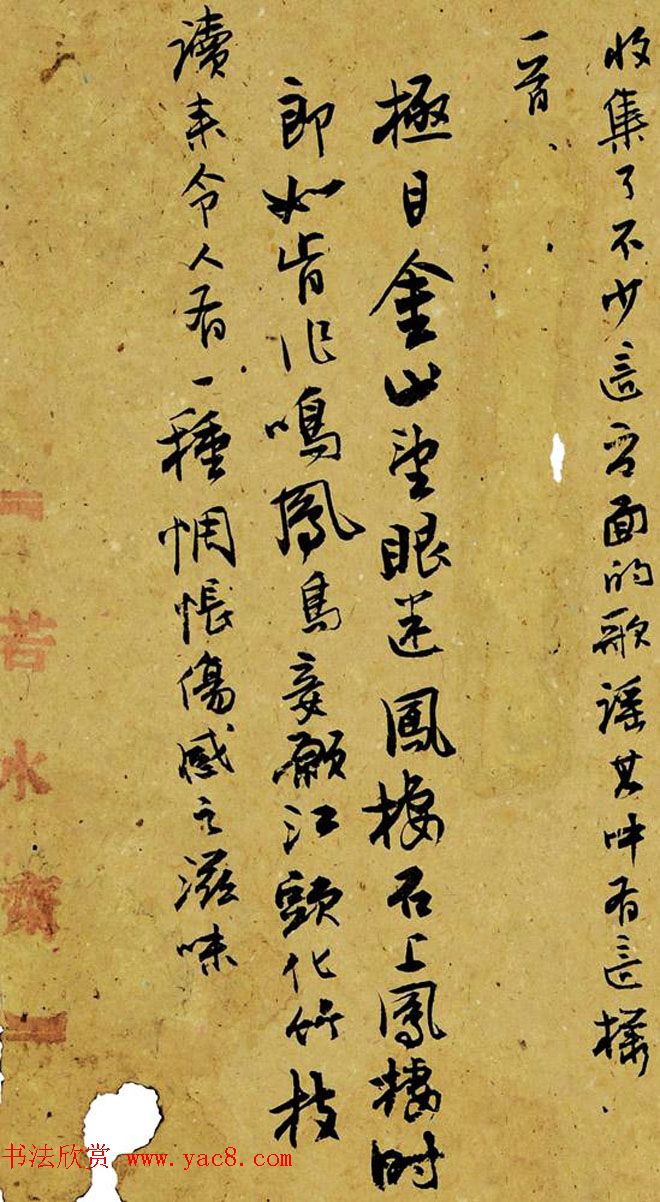 收集了不少這方面的歌謡其中有這樣
一首、
極目金山望眼迷鳳棲石上鳳棲時
郎如肯作鳴鳳鳥妾願江頭化竹枝
讀来令人有一種惆悵傷感之滋味
若水齋
书法欣赏 www.yac8.com